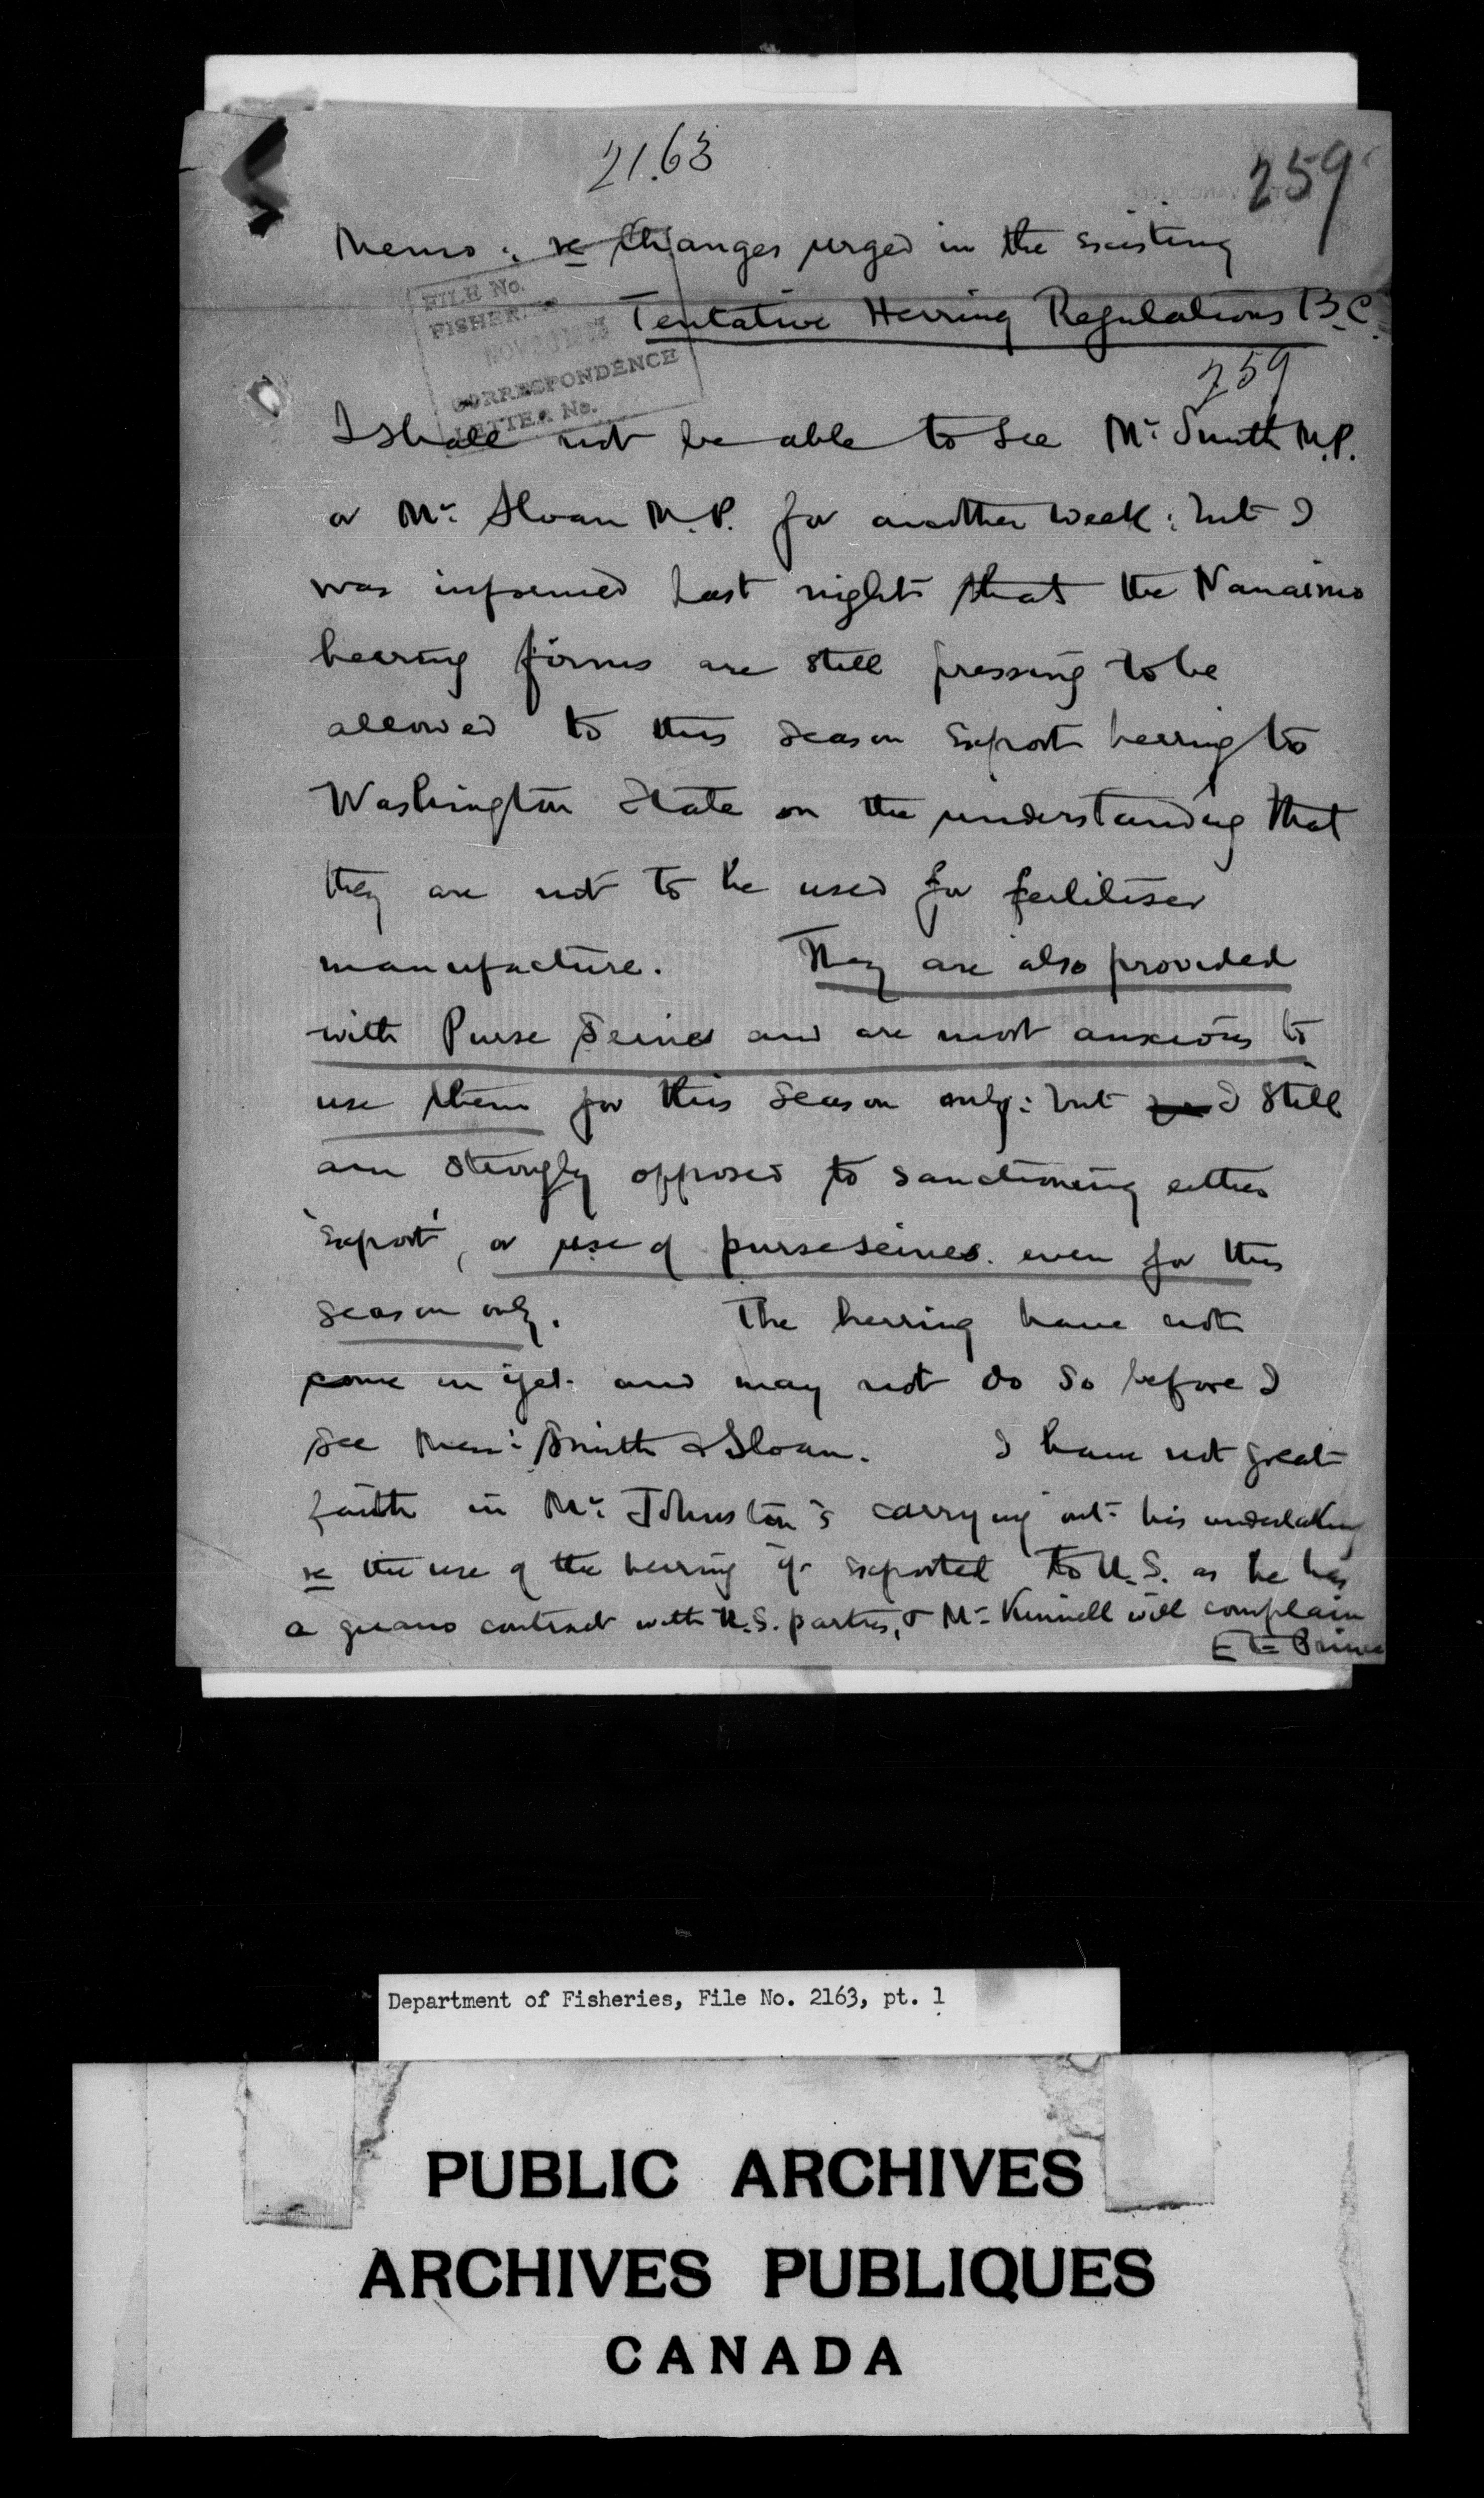 2163
259
Memo: re Changes urged in the existing
Tentative Herring Regulations B.C.
FILE No.
FISHERIES
NOV
CORRESPONDENCE
LETTER No.
259
I shall not be able to see Mr. Smith M.P.
or Mr. Sloan M.P. for another week: but I
was informed last night that the Nanaimo
herring firms are still pressing to be
allowed to this season export herring to
Washington State on the understanding that
they are not to be used for fertiliser
manufacture. They are also provided
with Purse Seines and are most anxious to
use them for this season only: but I still
am strongly opposed to sanctioning either
'export', or use of purse seines even for this
season only. The herring have not
come in yet and may not do so before I
see Messrs. Smith & Sloan. I have not great
faith in Mr. Johnston's carrying out his undertaking
re the use of the herring if exported to U.S. as he has
a guano contract with U.S. parties, & Mr. will complain
E E Prince
Department of Fisheries, File No. 2163, pt. 1
PUBLIC ARCHIVES
ARCHIVES PUBLIQUES
CANADA